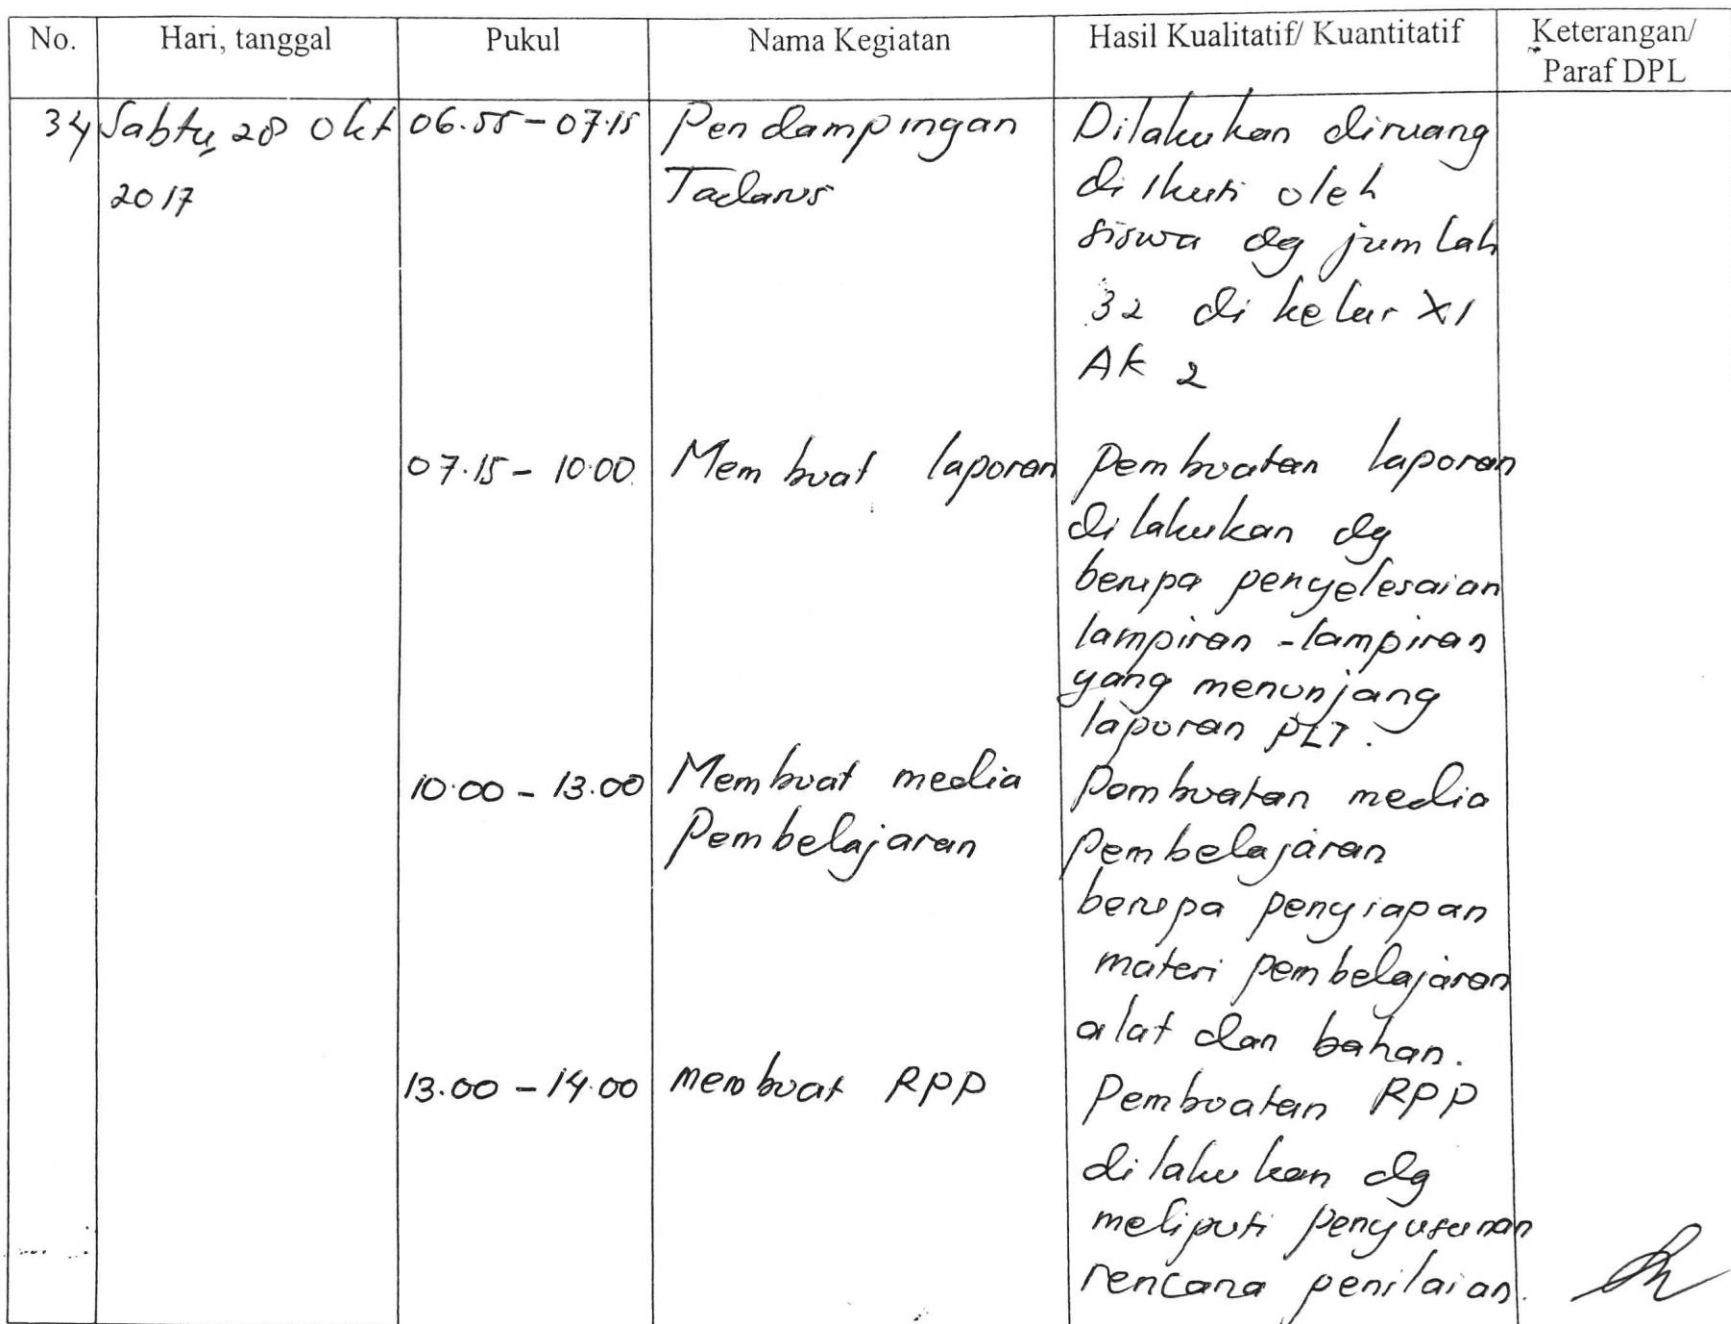 No. Hari, tanggal Pukul Nama Kegiatan Hasil Kualitatif/ Kuantitatif Keterangan/
Paraf DPL
34 Sabtu, 28 Okt 06.55 - 07.15 Pendampingan Dilakukan diruang
2017 Tadarus diikuti oleh
siswa dg jumlah
32 di kelas XI
AK 2
07.15 - 10.00 Membuat laporan Pembuatan laporan
dilakukan dg
berupa penyelesaian
lampiran - lampiran
yang menunjang
laporan PLT.
10.00 - 13.00 Membuat media Pembuatan media
Pembelajaran Pembelajaran
berupa penyiapan
materi pembelajaran
alat dan bahan.
13.00 - 14.00 membuat RPP Pembuatan RPP
dilakukan dg
meliputi penyusunan
rencana penilaian.